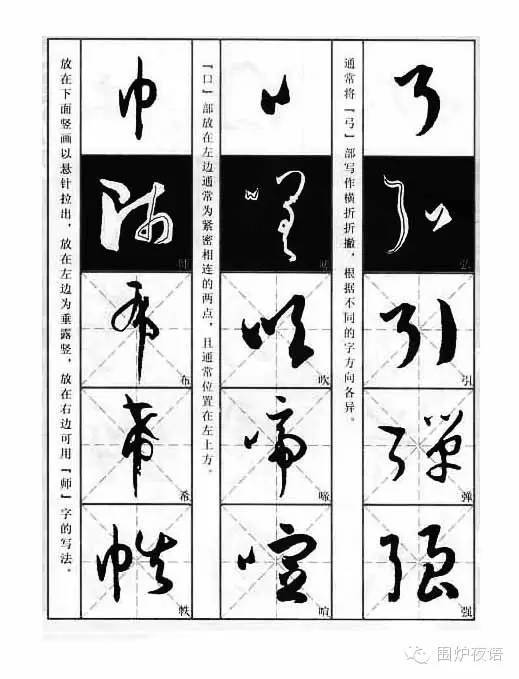 弘
引
弹
强
通常将『弓』部写作横折折撇，根据不同的字方向各异。
吹
啼
喧
『口』部放在左边通常为紧密相连的两点，且通常位置在左上方。
师
布
希
帙
放在下面竖画以悬针拉出，放在左边为垂露竖，放在右边可用『师』字的写法。
围炉夜语